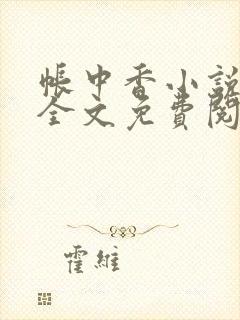 帳中香小說
全文免費閱
霍維